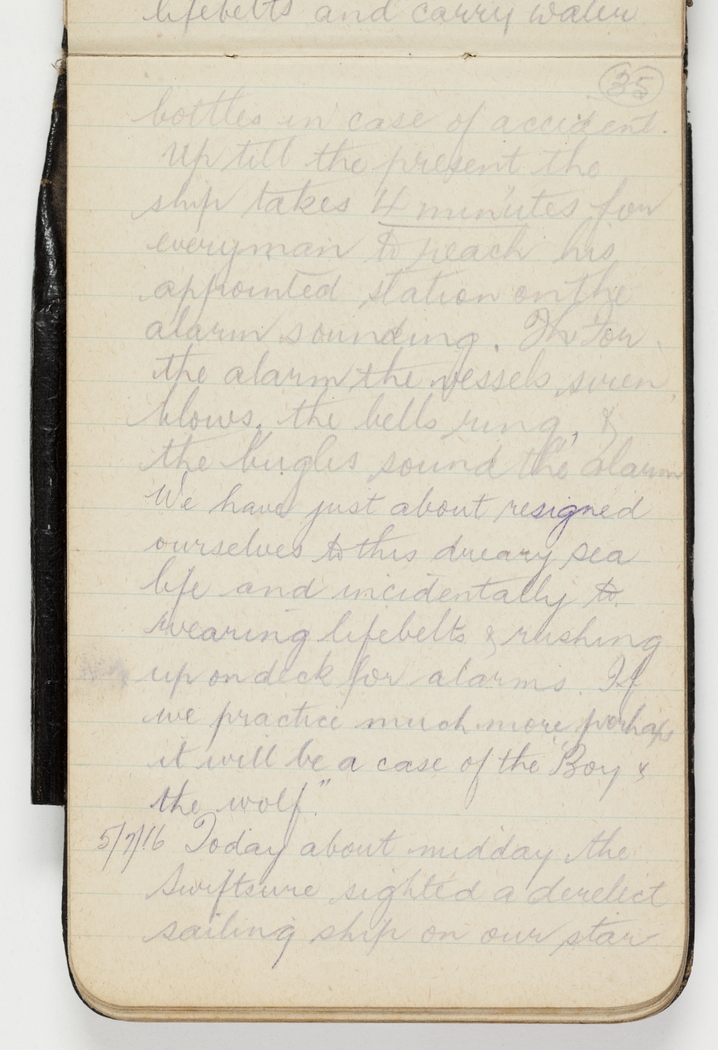 lifebelts and carry water
35
bottles in case of accident.
Up till the present the
ship takes 4 minutes for
everyman to reach his
appointed station on the
alarm sounding. For
the alarm the vessels siren,
blows, the bells ring, &
the bugles sound the alarm
We have just about resigned
ourselves to this dreary sea
life and incidentally to
wearing lifebelts & rushing
up on deck for alarms. If
we practice much more perhaps
it will be a case of the "Boy &
the wolf."
5/7/16 Today about midday the
Swiftsure sighted a derelect
sailing ship on our star